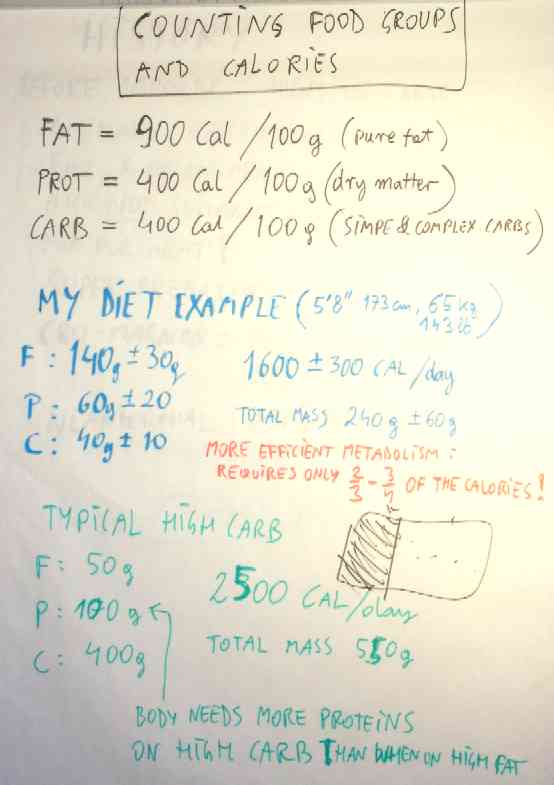 COUNTING FOOD GROUPS
AND CALORIES
FAT = 900 Cal / 100g (pure fat)
PROT = 400 Cal / 100g (dry matter)
CARB = 400 Cal / 100g (SIMPE & COMPLEX CARBS)
MY DIET EXAMPLE (5'8" 173cm, 65kg
143 lb)
F: 140g ± 30g
1600 ± 300 CAL/day
P: 60g ± 20
TOTAL MASS 240g ± 60g
C: 40g ± 10
MORE EFFICIENT METABOLISM:
REQUIRES ONLY 2/3 - 3/4 OF THE CALORIES!
TYPICAL HIGH CARB
F: 50g
2500 CAL/day
P: 100g
TOTAL MASS 550g
C: 400g
BODY NEEDS MORE PROTEINS
ON HIGH CARB THAN WHEN ON HIGH FAT